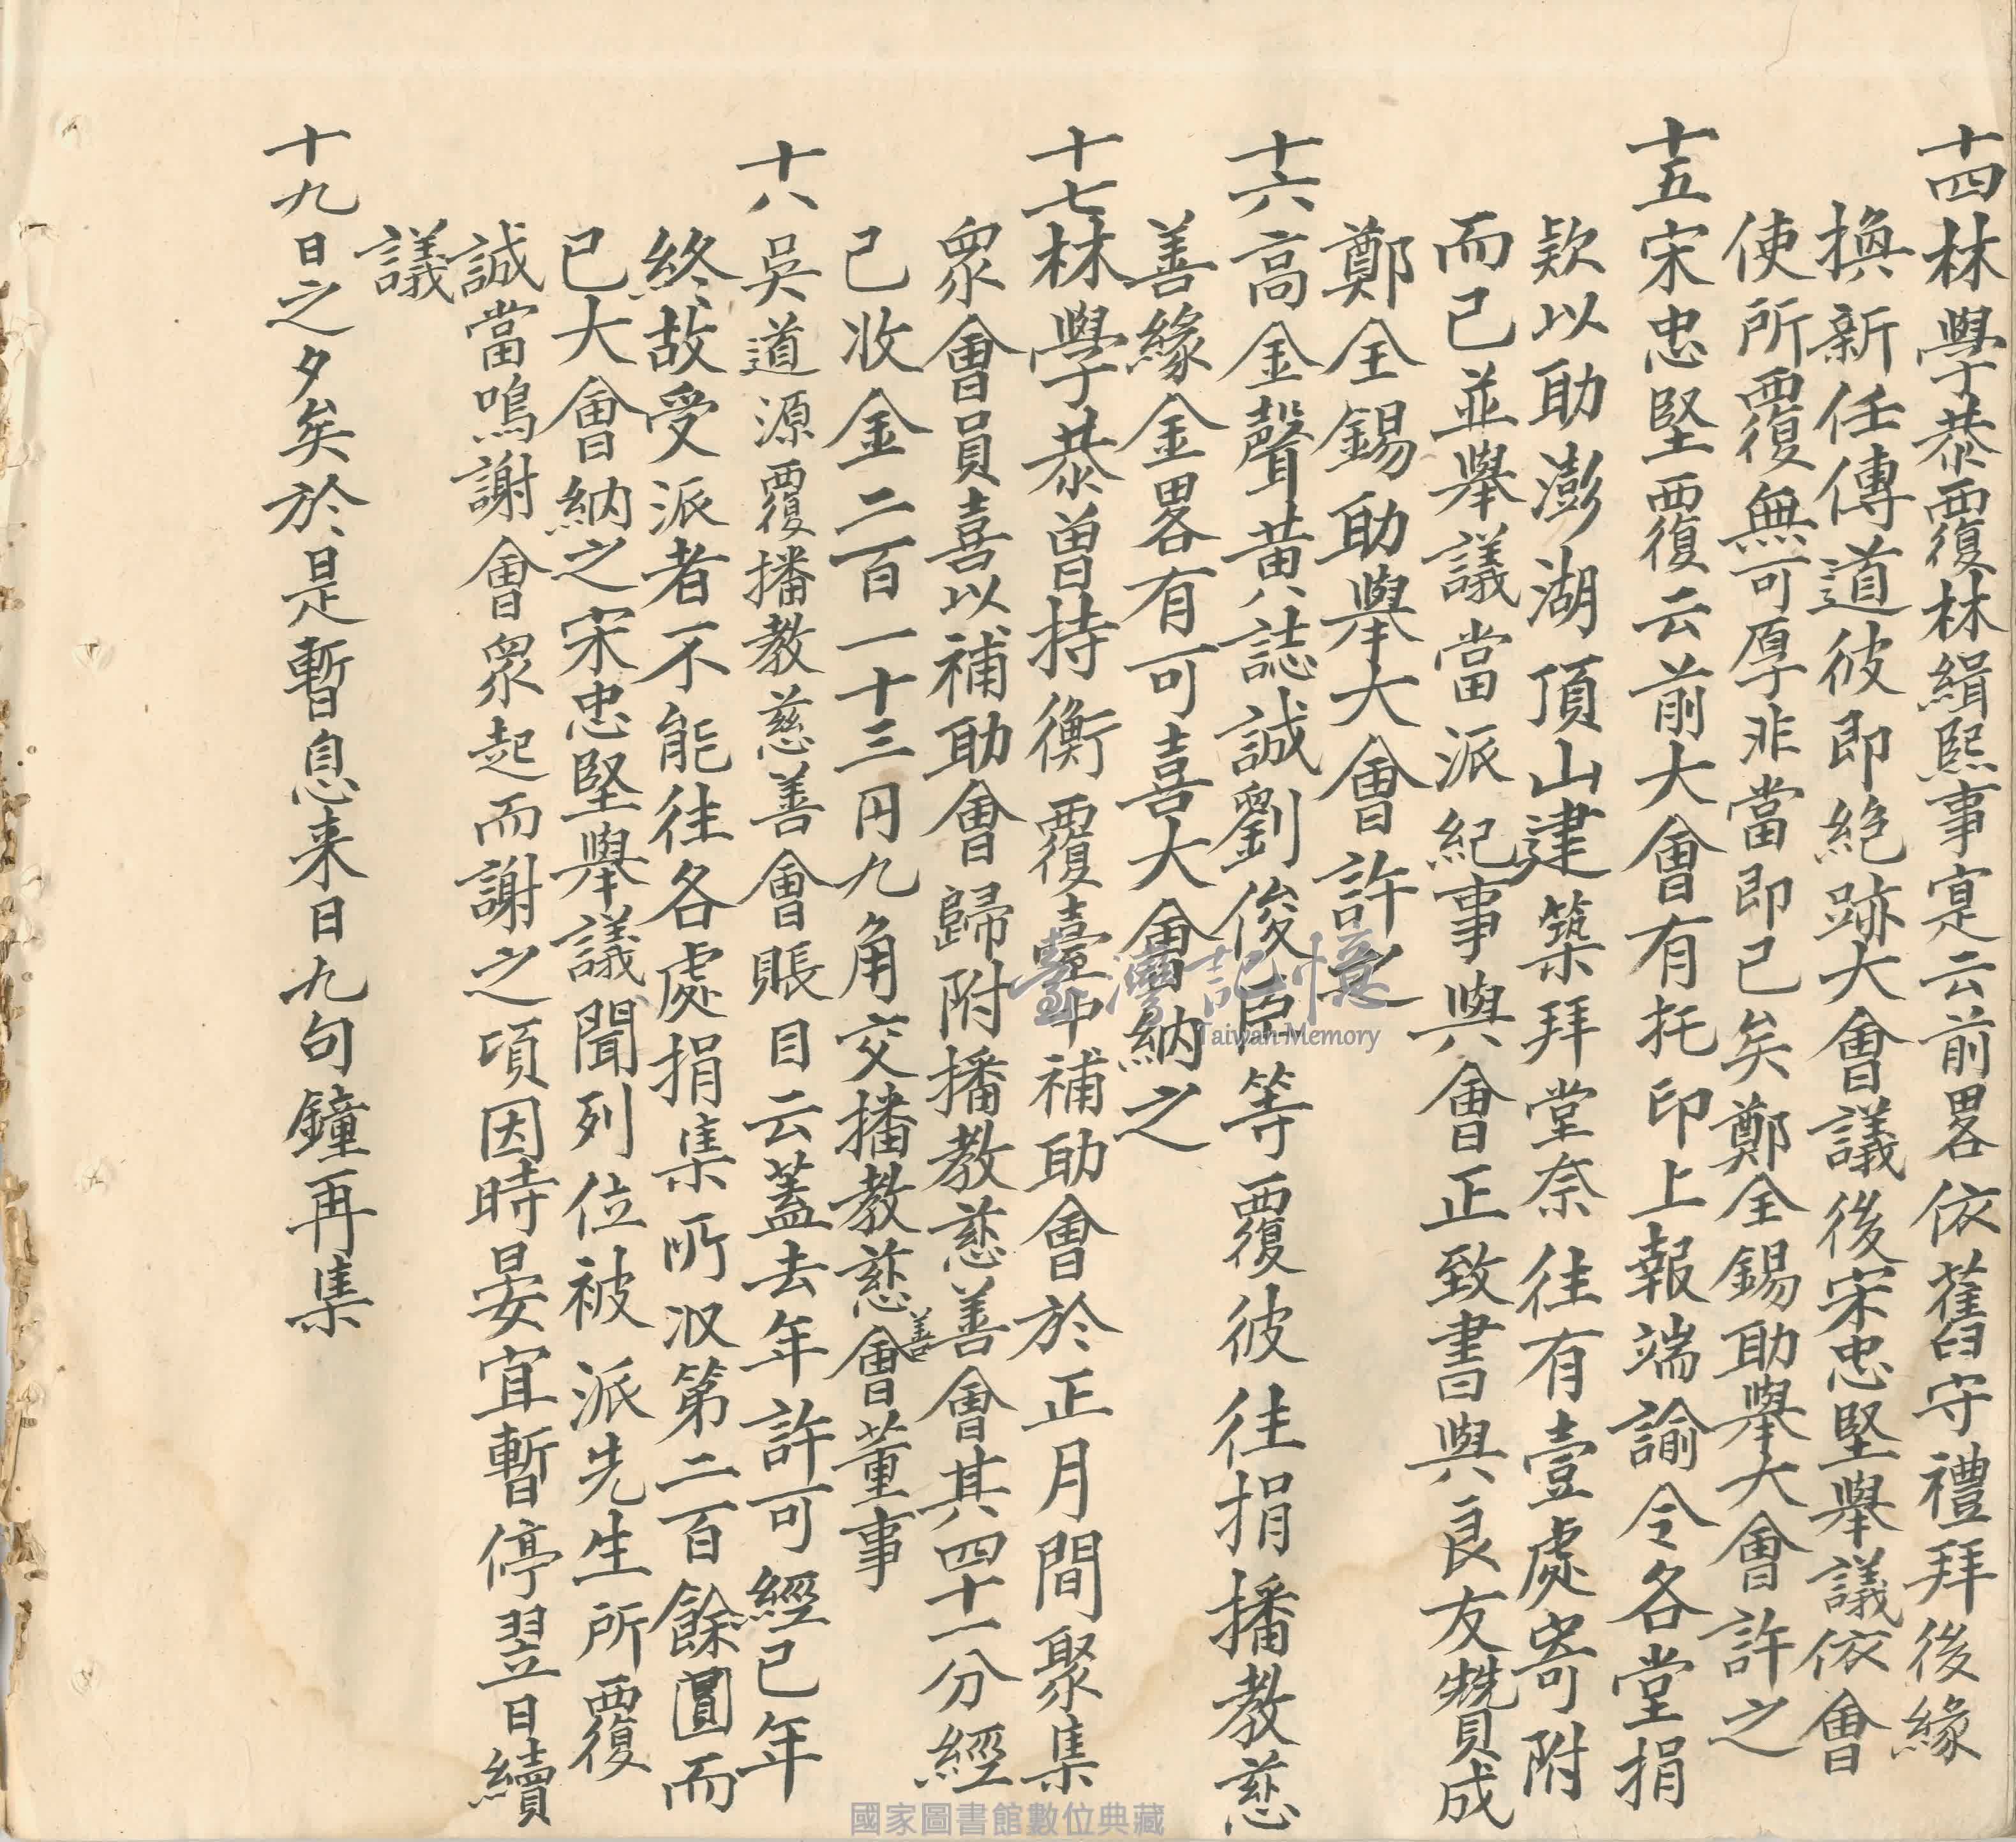 十四林學恭覆林緝熙事寔云前畧依舊守禮拜後緣
換新任傳道彼即絶跡大會議後宋忠堅舉議依會
使所覆無可厚非當即已矣鄭全錫助舉大會許之
十五宋忠堅覆云前大會有托印上報端諭令各堂捐
欵以助澎湖頂山建築拜堂奈往有壹處寄附
而已並舉議當派紀事與會正致書與良友賛成
鄭全錫助舉大會許之
十六高金聲黃誌誠劉俊臣等覆彼往捐播教慈
善緣金畧有可喜大會納之
十七林學恭曾持衡覆臺中補助會於正月間聚集
眾會員喜以補助會歸附播教慈善會其四十一分經
已收金二百一十三円九角交播教慈善會董事
十八吳道源覆播教慈善會賬目云蓋去年許可經已年
終故受派者不能往各處捐集所収第二百餘圓而
已大會納之宋忠堅舉議聞列位被派先生所覆
誠當鳴謝會眾起而謝之項因時晏宜暫停翌日續
議
十九日之夕矣於是暫息来日九句鐘再集
臺灣記憶
Taiwan Memory
國家圖書館數位典藏